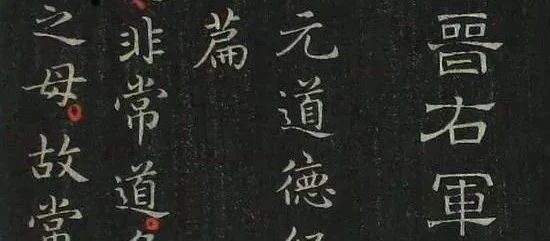 晉右軍
元道德
篇
非常道
之母故常